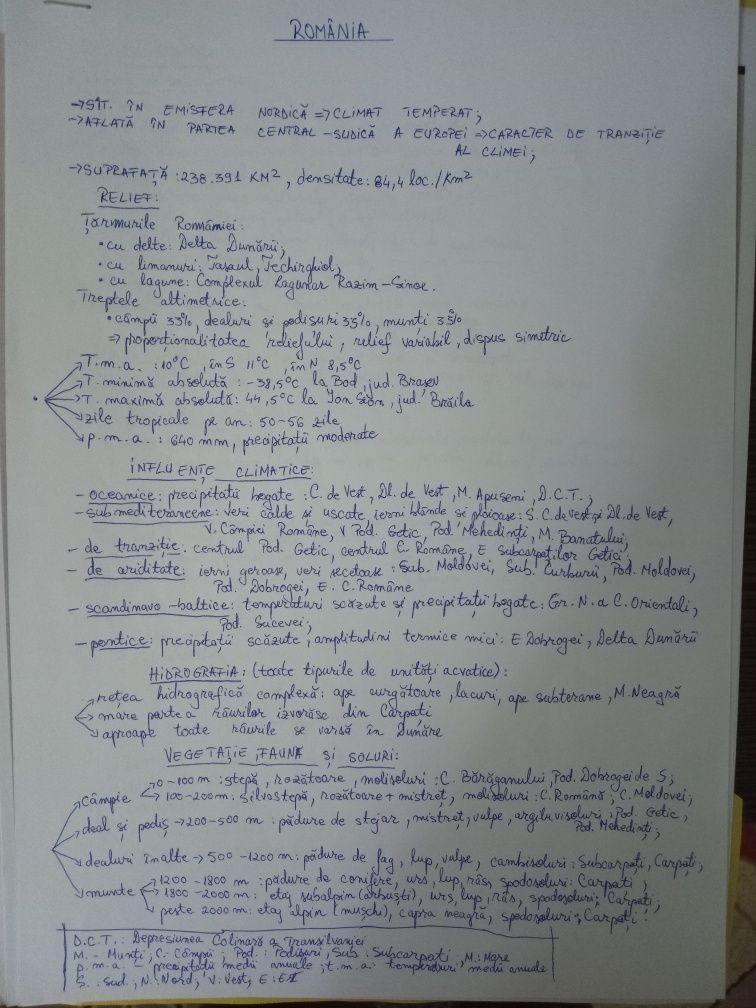 ROMÂNIA
→SIT. ÎN EMISFERA NORDICĂ ⇒ CLIMAT TEMPERAT;
→AFLATĂ ÎN PARTEA CENTRAL-SUDICĂ A EUROPEI ⇒ CARACTER DE TRANZIȚIE
AL CLIMEI;
→SUPRAFAȚĂ: 238.391 KM², densitate: 84,4 loc./Km²
RELIEF:
Țărmurile României:
• cu delte: Delta Dunării;
• cu limanuri: Tașaul, Techirghiol;
• cu lagune: Complexul Lagunar Razim-Sinoe.
Treptele altimetrice:
• câmpii 33%, dealuri și podișuri 35%, munți 35%
⇒ proporționalitatea reliefului, relief variabil, dispus simetric
→T.m.a.: 10°C, în S 11°C, în N 8,5°C
→T. minimă absolută: -38,5°C la Bod, jud. Brașov
→T. maximă absolută: 44,5°C la Ion Sion, jud. Brăila
→zile tropicale pe an: 50-56 zile
→p.m.a.: 640 mm, precipitații moderate
INFLUENȚE CLIMATICE:
- oceanice: precipitații bogate: C. de Vest, Dl. de Vest, M. Apuseni, D.C.T.;
- submediteraneene: veri calde și uscate, ierni blânde și ploioase: S. C. de Vest și Dl. de Vest,
V. Câmpiei Române, V Pod. Getic, Pod. Mehedinți, M. Banatului;
- de tranziție: centrul Pod. Getic, centrul C. Române, E Subcarpaților Getici;
- de ariditate: ierni geroase, veri secetoase: Sub. Moldovei, Sub. Curburii, Pod. Moldovei,
Pod. Dobrogei, E. C. Române
- scandinavo-baltice: temperaturi scăzute și precipitații bogate: Gr. N. a C. Orientali,
Pod. Sucevei;
- pontice: precipitații scăzute, amplitudini termice mici: E Dobrogei, Delta Dunării
HIDROGRAFIA: (toate tipurile de unități acvatice):
→rețea hidrografică complexă: ape curgătoare, lacuri, ape subterane, M. Neagră
→mare parte a râurilor izvorăsc din Carpați
→aproape toate râurile se varsă în Dunăre
VEGETAȚIE, FAUNĂ ȘI SOLURI:
→câmpie →0-100 m: stepă, rozătoare, molisoluri: C. Bărăganului, Pod. Dobrogei de S;
→100-200 m: silvostepă, rozătoare + mistreț, molisoluri: C. Română, C. Moldovei;
→deal și podiș →200-500 m: pădure de stejar, mistreț, vulpe, argiluvisoluri: Pod. Getic,
Pod. Mehedinți;
→dealuri înalte →500-1200 m: pădure de fag, lup, vulpe, cambisoluri: Subcarpați, Carpați;
→munte →1200-1800 m: pădure de conifere, urs, lup, râs, spodosoluri: Carpați;
→1800-2000 m: etaj subalpin (arbuști), urs, lup, râs, spodosoluri: Carpați;
→peste 2000 m: etaj alpin (mușchi), capra neagră, spodosoluri: Carpați.
D.C.T.: Depresiunea Colinară a Transilvaniei
M. - Munți, C: Câmpii; Pod.: Podișuri, Sub: Subcarpați, M.: Mare
p.m.a. - precipitații medii anuale; t.m.a: temperaturi medii anuale
S.: Sud, N.: Nord, V: Vest, E: Est